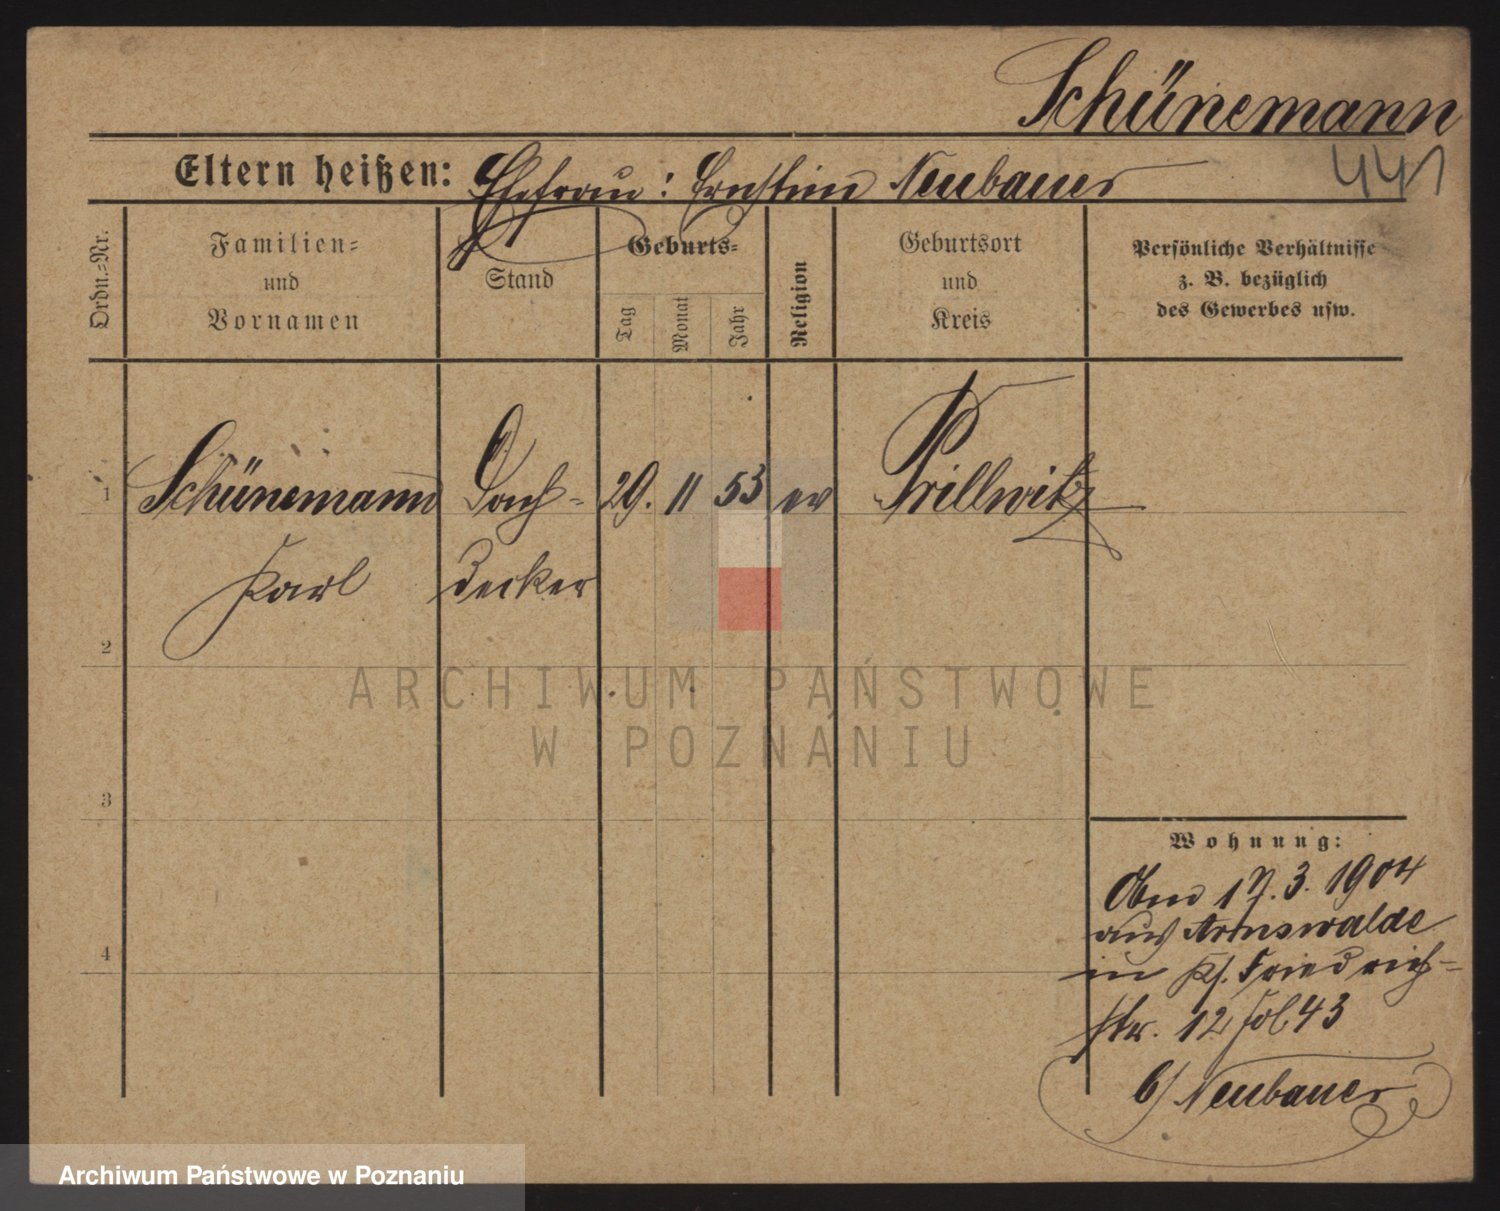 Schünemann
441
Eltern heißen: Ehefrau: Ernstine Neubauer
Ordn.=Nr.
Familien=
und
Vornamen
Stand
Geburts=
Tag
Monat
Jahr
Religion
Geburtsort
und
Kreis
Persönliche Verhältnisse
z. B. bezüglich
des Gewerbes usw.
1 Schünemann Dach= 29. 11 53 ev Prillwitz
Karl decker
2
3
4
ARCHIWUM PAŃSTWOWE
W POZNANIU
Wohnung:
17. 3. 1904
aus Arnswalde
in Kl. Friedrich=
str. 12 Fol 43
b/ Neubauer
Archiwum Państwowe w Poznaniu